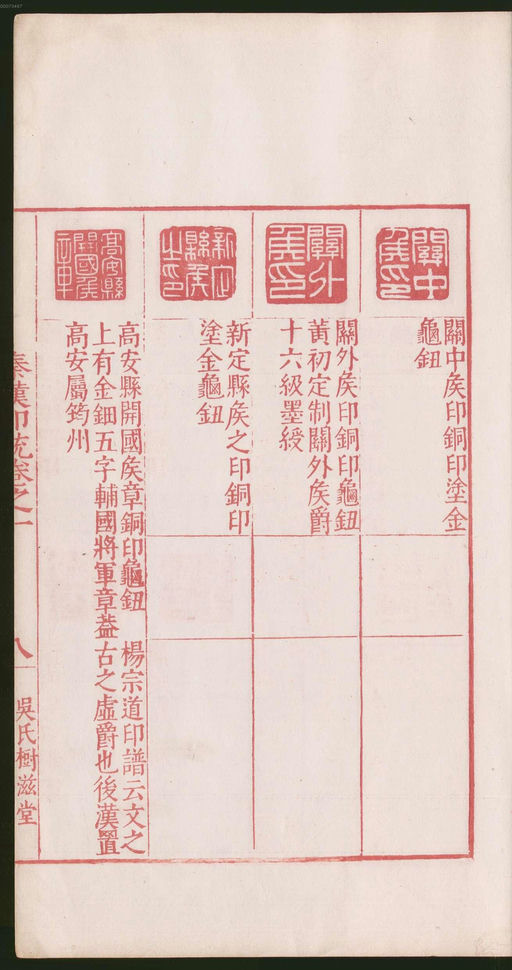 00073467
關中
矦印
關中矦印銅印塗金
龜鈕
關外
矦印
關外矦印銅印龜鈕
黃初定制關外矦爵
十六級墨綬
新定
縣矦
之印
新定縣矦之印銅印
塗金龜鈕
高安縣
開國矦
章
高安縣開國矦章銅印龜鈕 楊宗道印譜云文之
上有金鈿五字輔國將軍章葢古之虛爵也後漢置
高安屬筠州
秦漢印統卷之一 八 吳氏樹滋堂